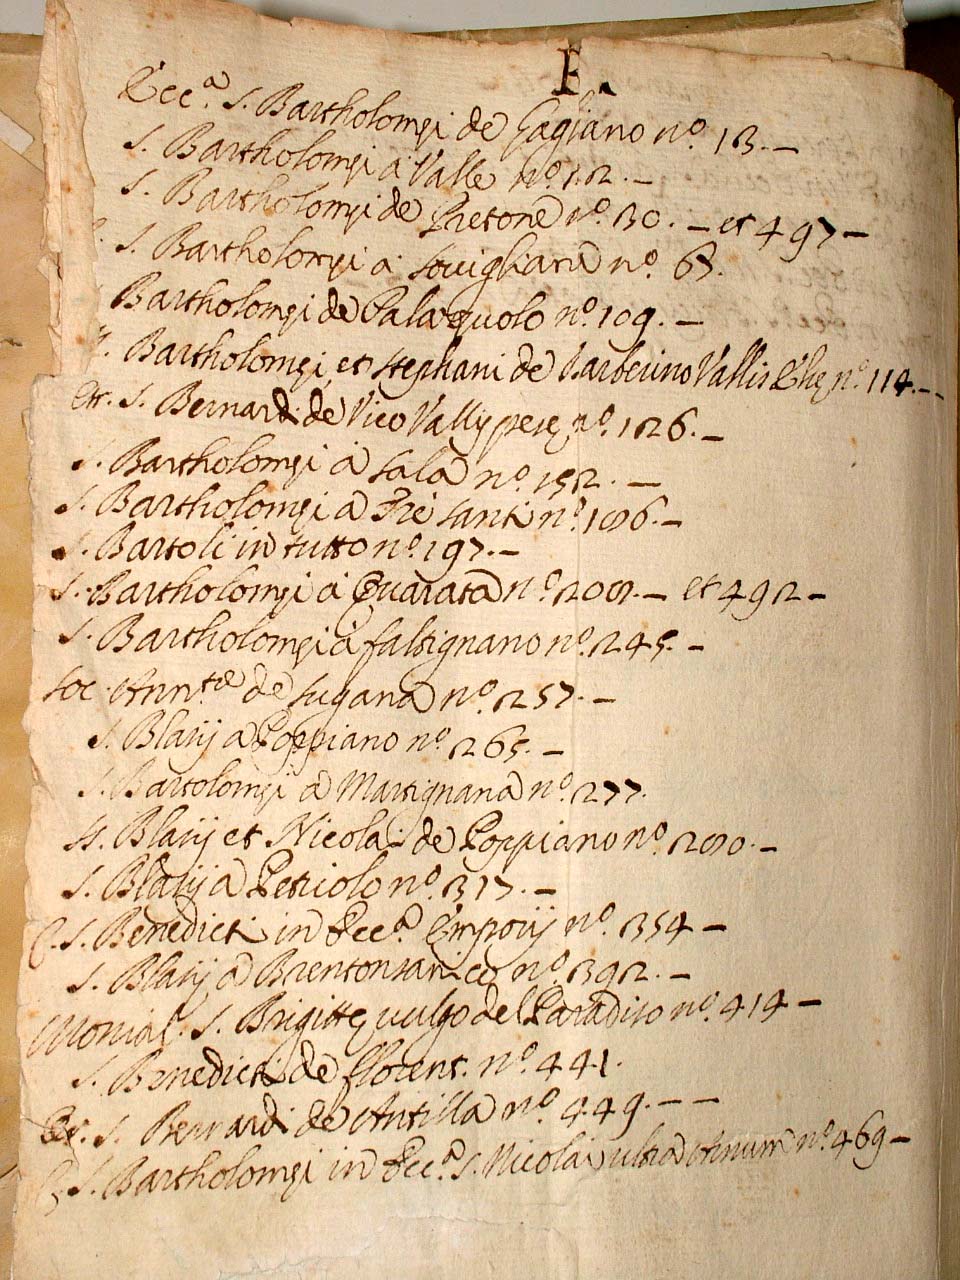 B.
Ecc.ª S. Bartholomęi de Gagliano n.º 13.—
S. Bartholomęi a Valle n.º 12.—
S. Bartholomęi de Pretone n.º 30.— et 497—
S. Bartholomęi a Sovigliana n.º 67.
Bartholomęi de Palazzuolo n.º 109.—
SS. Bartholomęi et Stephani de Barberino Vallis Elsę n.º 114.—
S. Bernardi de Vico Vallis pesę n.º 126.—
S. Bartholomęi a Sala n.º 152.—
S. Bartholomęi a Tre Santi n.º 186.—
S. Bartoli in tutto n.º 197.—
S. Bartholomęi a Quarata n.º 208.— et 492—
S. Bartholomęi a faltignano n.º 245.—
Soc. Ann.tę de Lugana n.º 257.—
S. Blasij a Poppiano n.º 265.—
S. Bartolomęi a Martignana n.º 277.
SS. Blasij et Nicolai de Poppiano n.º 280.—
S. Blasij a Petriolo n.º 317.—
C. S. Benedicti in Ecc.ª Emporij n.º 354—
S. Blasij a n.º 392.—
Monial. S. Brigittę vulgo del Paradiso n.º 414—
S. Benedicti de florent. n.º 441.
S. Bernardi de Antilla n.º 449.——
S. Bartholomęi in Ecc.ª S. Nicolai ultra Arnum n.º 469—